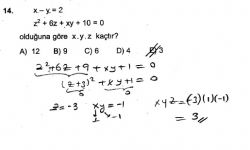 14. x – y = 2
z² + 6z + xy + 10 = 0
olduğuna göre x.y.z kaçtır?
A) 12 B) 9 C) 6 D) 4 E) 3
z² + 6z + 9 + xy + 1 = 0
(z+3)² + xy + 1 = 0
0 0
z = -3 xy = -1
1 -1
xyz = (-3)(1)(-1)
= 3